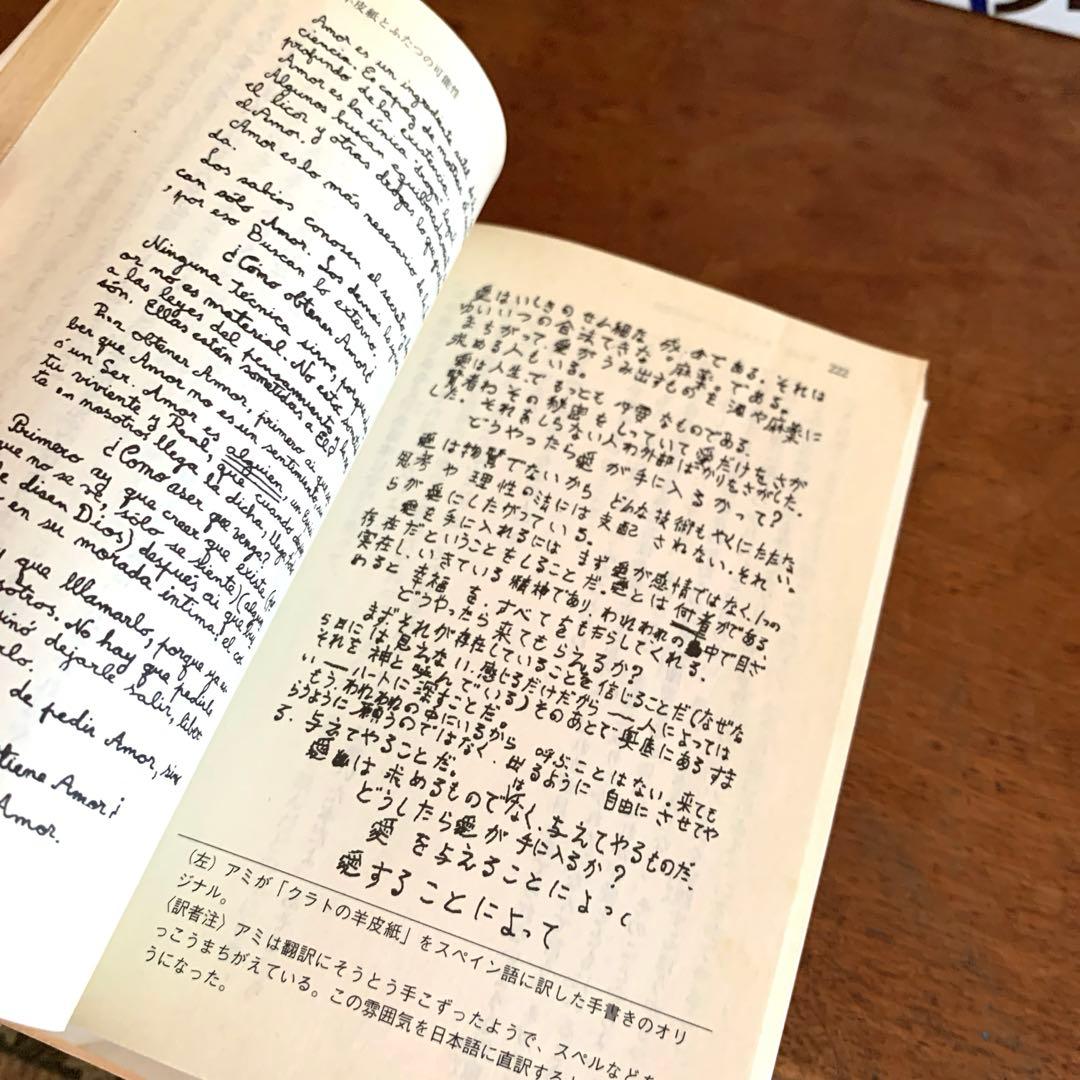 皮紙とふたつの可能性
Amor es un ingrediente sutil de la
ciencia. Es capaz de mostrar el
profundo de la existencia.
Amor es la única "droga" 
Algunos buscan equibocadamente
el licor y otras drogas lo que
el Amor.
Amor es lo más nesesario de la
da.
Los sabios conosen el secreto,
can sólo Amor. Los demas lo
, por eso Buscan lo externo.
¿Como obtener Amor?
Ninguna técnica sirve, porque
or no es material. No está
a las leyes del pensamiento y
sión. Ellas están sometidas a El
Par obtener Amor, primero ai que
ber que Amor no es un sentimiento,
ó un Ser. Amor es alguien, un
tu viviente y Real, que cuando
ta en nosotros, llega la dicha, llega
¿Como aser que venga?
Primero ay que creer que existe (
que no se vé, sólo se siente) (
le disen Dios) después ai que
r en su morada íntima: el co
y que lllamarlo, porque ya
sotros. No hay que pedirle
sinó dejarle salir,
alo.
de pedir Amor, sin
tiene Amor¿
Amor.
222
愛はいしきのせん細な成分である。それは
ゆいいつの合法できな"麻薬"である。
まちがって、愛がうみ出すものを酒や麻薬に
求める人もいる。
愛は人生でもっとも必要なものである。
賢者わその秘密をしっていて愛だけをさが
した。それをしらない人わ外部ばかりをさがした。
どうやったら愛が手に入るかって?
愛は物質でないからどんな技術もやくにたたない。
思考や理性の法には支配されない。それ
らが愛にしたがっている。
愛を手に入れるには、まず愛が感情ではなく、1つの
存在だということをしることだ。愛とは何者かである
実在し、いきている精神であり、われわれの中で目ざ
めると幸福を、すべてをもたらしてくれる。
どうやったら来てもらえるか?
まず、それが存在していることを信じることだ(なぜな
ら目には見えない、感じるだけだから——人によっては
それを神と呼んでいる)そのあとで奥底にあるすま
い——ハートに探すことだ。
もうわれわれの中にいるから呼ぶことはない。来ても
らうように願うのではなく、出るように自由にさせてや
る、与えてやることだ。
愛は求めるものでなく、与えてやるものだ、
どうしたら愛が手に入るか?
愛を与えることによって
愛することによって
(左)アミが「クラトの羊皮紙」をスペイン語に訳した手書きのオリ
ジナル。
〈訳者注〉アミは翻訳にそうとう手こずったようで、スペルなどを
っこうまちがえている。この雰囲気を日本語に直訳する
うになった。